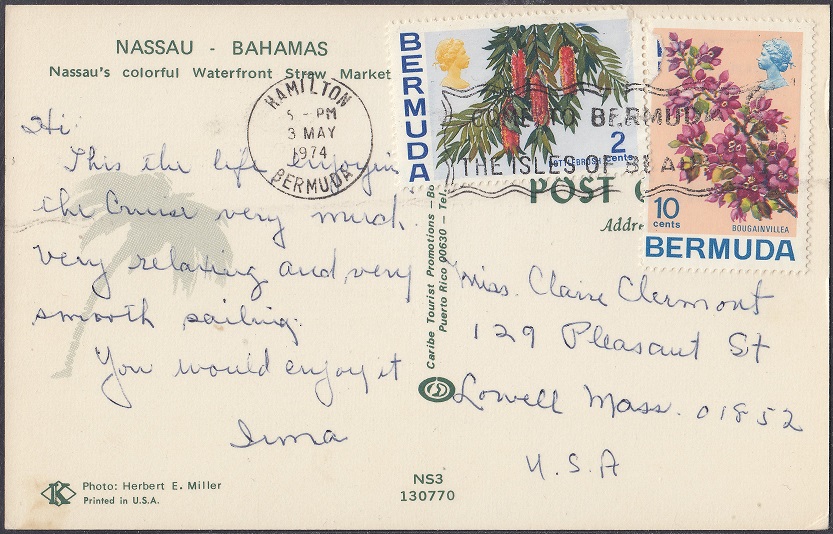 NASSAU - BAHAMAS
Nassau's colorful Waterfront Straw Market
HAMILTON
5 - PM
3 MAY
1974
BERMUDA
BERMUDA
BOTTLEBRUSH
2
cents
COME TO BERMUDA
THE ISLES OF
10
cents
BOUGAINVILLEA
BERMUDA
POST
Addre
Hi
This the life enjoying
the Cruise very much.
Very relaxing and very
smooth sailing.
You would enjoy it
Irma
Caribe Tourist Promotions – Bo
Puerto Rico 00630 – Tel.
Miss. Claire Clermont
129 Pleasant St
Lowell Mass. 01852
U.S.A
K
Photo: Herbert E. Miller
Printed in U.S.A.
NS3
130770